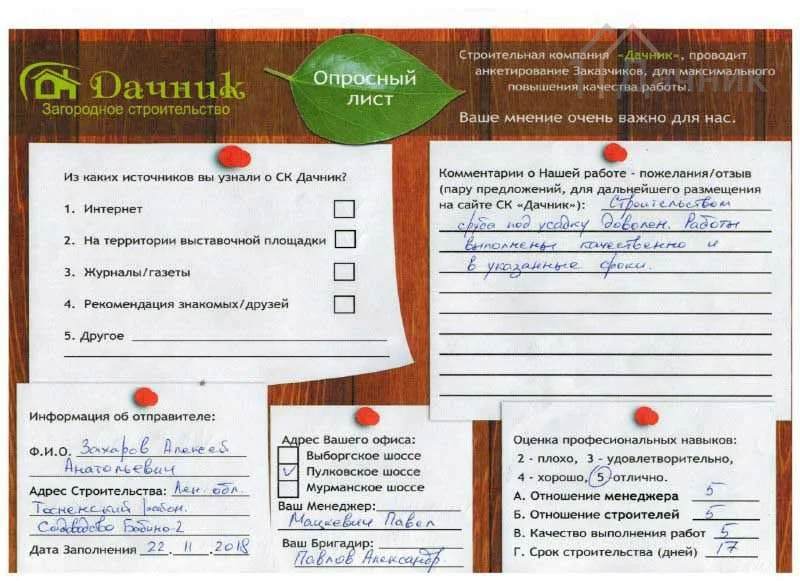 Дачник
Загородное строительство
Опросный
лист
Строительная компания «Дачник», проводит
анкетирование Заказчиков, для максимального
повышения качества работы.
Ваше мнение очень важно для нас.
Из каких источников вы узнали о СК Дачник?
1. Интернет
2. На территории выставочной площадки
3. Журналы/газеты
4. Рекомендация знакомых/друзей
5. Другое
Комментарии о Нашей работе - пожелания/отзыв
(пару предложений, для дальнейшего размещения
на сайте СК «Дачник»): Строительством
сруба под усадку доволен. Работы
выполнены качественно и
в указанные сроки.
Информация об отправителе:
Ф.И.О. Захаров Алексей
Анатольевич
Адрес Строительства: Лен. обл.
Тосненский район.
Бабино-2
Дата Заполнения 22.11.2018
Адрес Вашего офиса:
Выборгское шоссе
Пулковское шоссе
Мурманское шоссе
Ваш Менеджер:
Мацкевич Павел
Ваш Бригадир:
Павлов Александр.
Оценка професиональных навыков:
2 - плохо, 3 - удовлетворительно,
4 - хорошо, 5 - отлично.
А. Отношение менеджера 5
Б. Отношение строителей 5
В. Качество выполнения работ 5
Г. Срок строительства (дней) 17